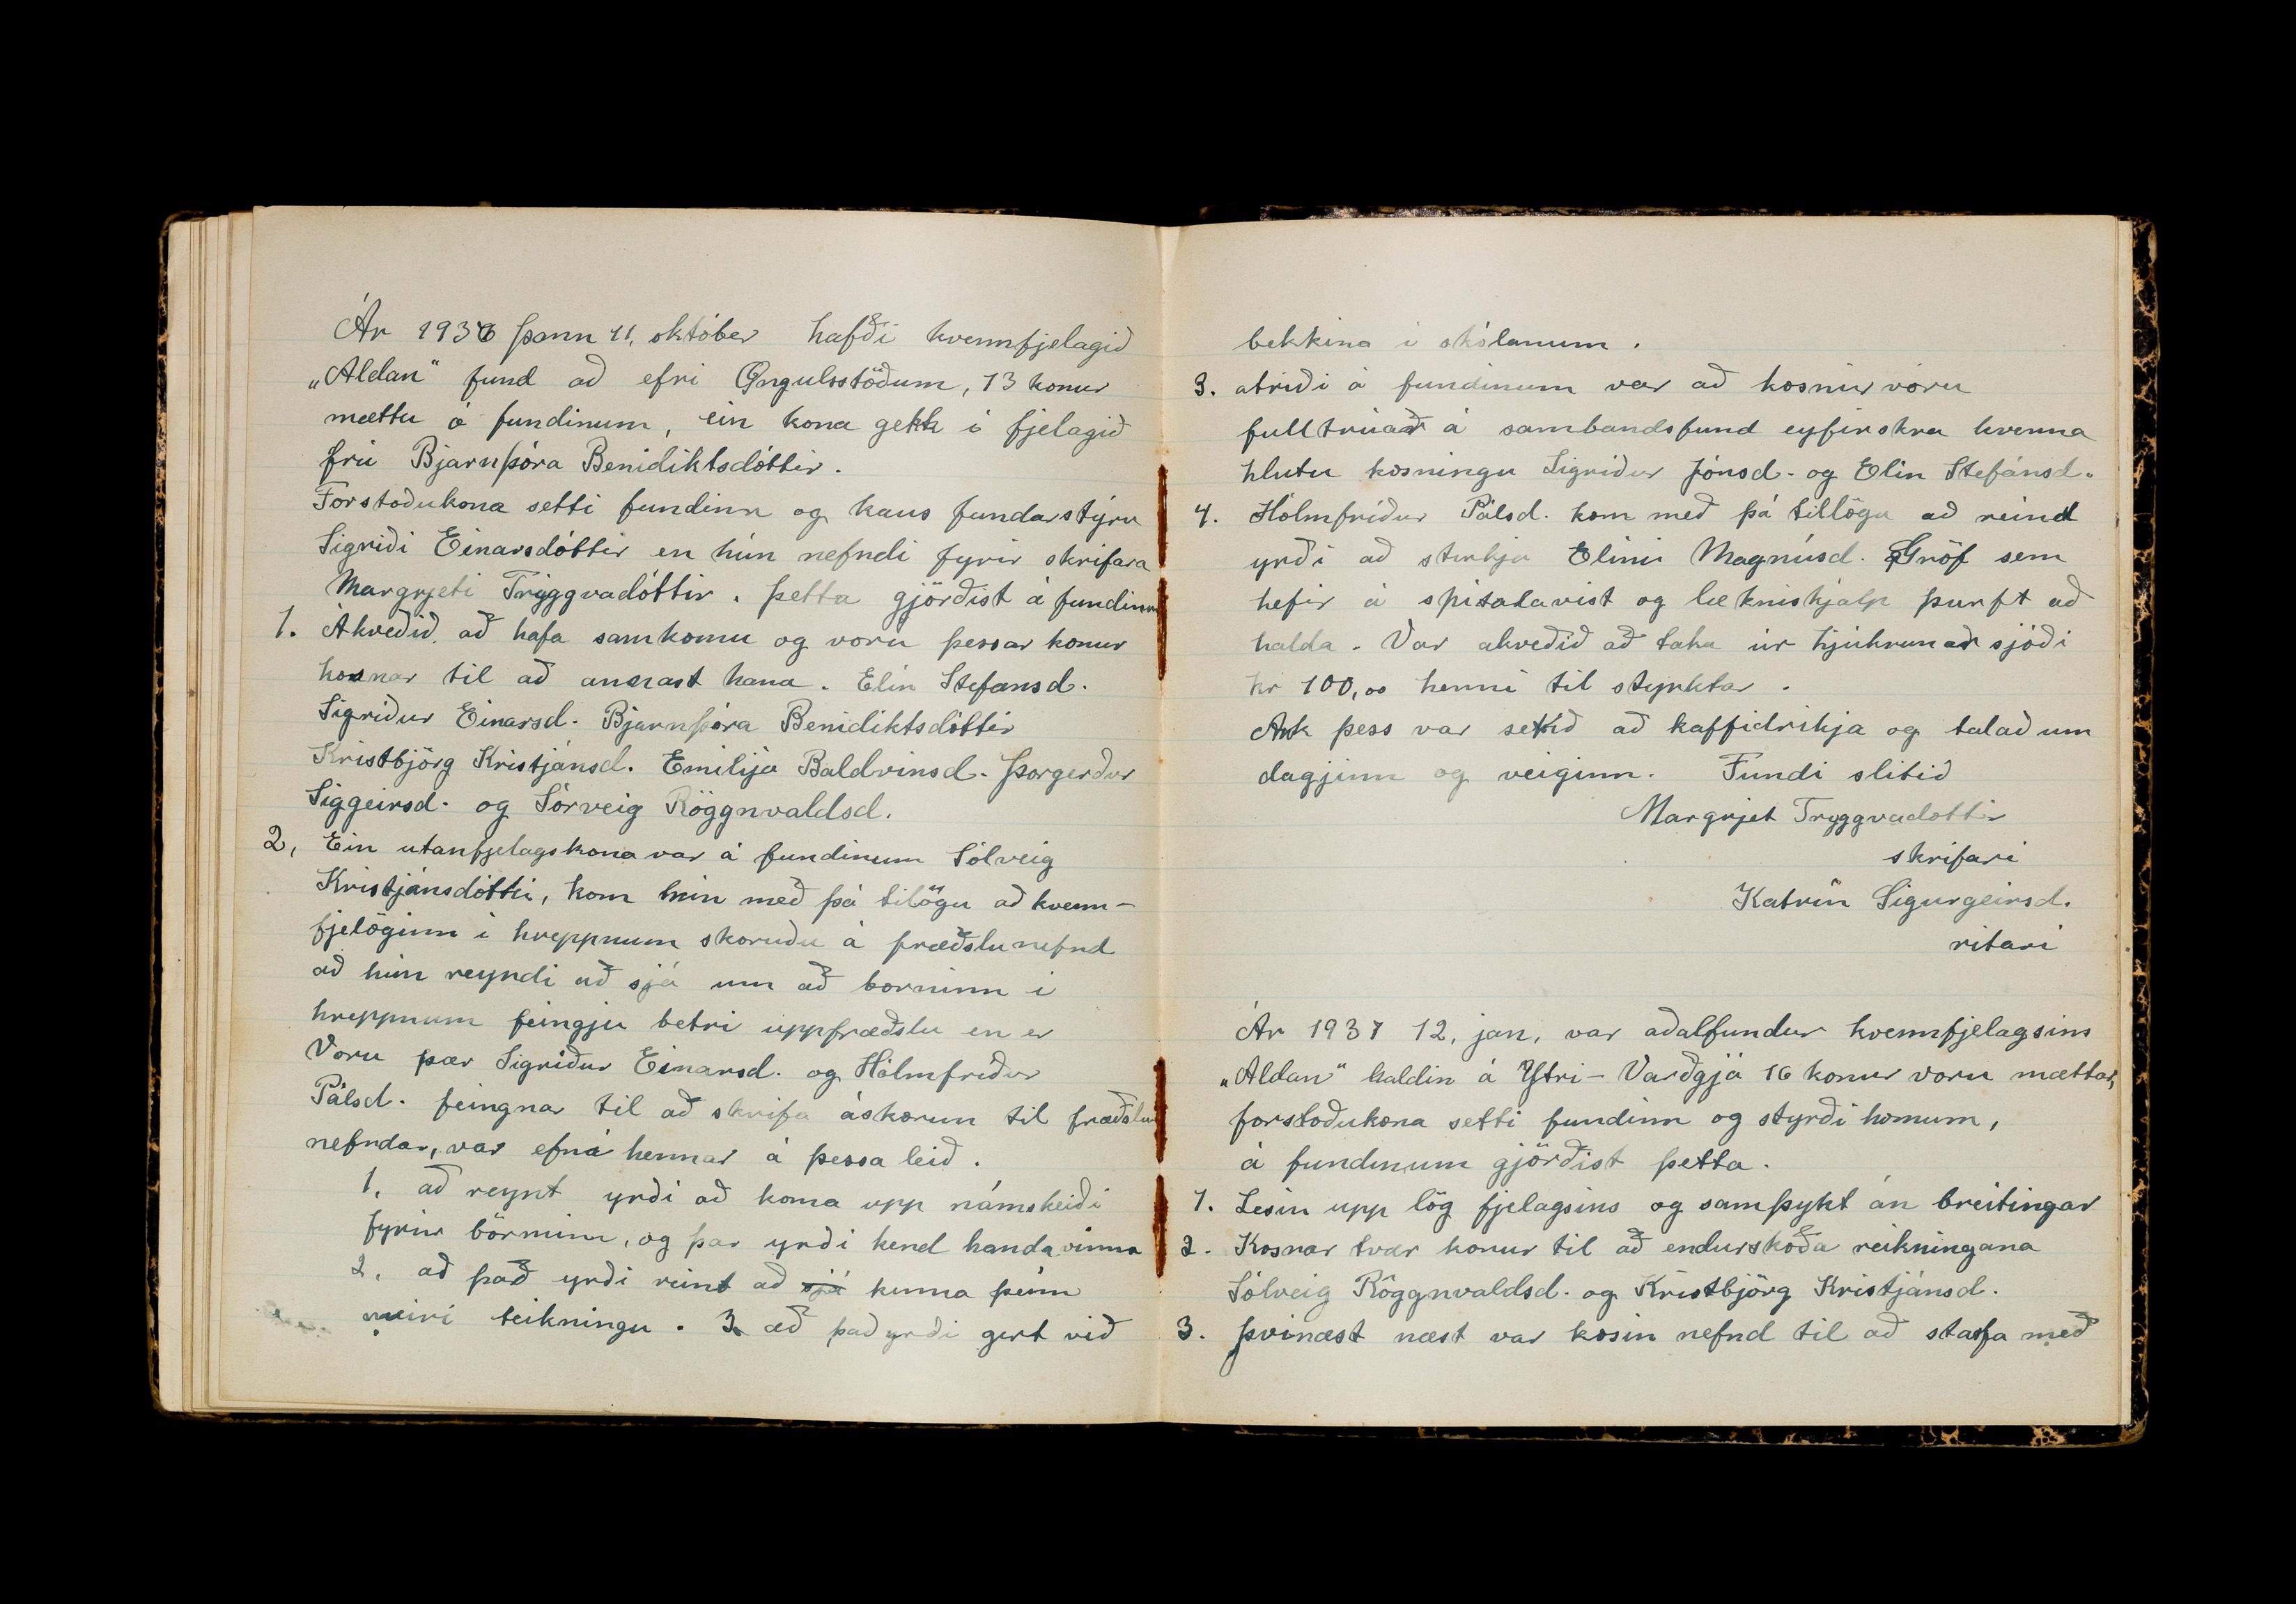 Ár 1936 þann 11, október hafði kvennfjelagið
„Aldan" fund að efri Öngulsstöðum, 13 konur
mættu á fundinum, ein kona gekk i fjelagið
frú Bjarnþóra Benidiktsdóttir.
Forstoðukona setti fundinn og kaus fundarstýru
Sigriði Einarsdóttir en hún nefndi fyrir skrifara
Margrjeti Tryggvadóttir. Þetta gjörðist á fundinum
1. Ákveðið að hafa samkomu og voru þessar konur
kosnar til að annast hana. Elín Stefansd.
Sigríður Einarsd. Bjarnþóra Benidiktsdóttir
Kristbjörg Kristjánsd. Emilija Baldvinsd. Þorgerður
Siggeirsd. og Sórveig Röggnvaldsd.
2, Ein utanfjelagskona var á fundinum Sólveig
Kristjánsdóttir, kom hún með þá tilögu að kvenn-
fjelöginn i hreppnum skoruðu á fræðslunefnd
að hún reyndi að sjá um að borninn i
hreppnum feingju betri uppfræðslu en er
Voru þær Sigriður Einarsd. og Hólmfríður
Pálsd. feingnar til að skrifa áskorun til fræðslu
nefndar, var efná hennar á þessa leið.
1, að reynt yrði að koma upp námskeiði
fyrir börninn, og þar yrði kend handavinna
2, að það yrði reint að sjá kenna þeim
meiri teikningu. 3. að það yrði gert við
bekkina i skólanum.
3. atriði á fundinum var að kosnir voru
fulltrúar á sambandsfund eyfirskra kvenna
hlutu kosningu Sigriður Jónsd. og Elin Stefánsd.
4. Hólmfríður Pálsd. kom með þá tillögu að reint
yrði að sterkja Elínu Magnúsd. Gröf sem
hefir á spítalavist og læknishjálp þurft að
halda. Var akveðið að taka úr hjúkrunar sjóði
kr 100,oo henni til styrktar.
Auk þess var setið að kaffidrikja og talað um
dagjinn og veiginn. Fundi slitið
Margrjet Tryggvadottir
skrifari
Katrín Sigurgeirsd.
ritari
Ár 1937 12, jan, var aðalfundur kvennfjelagsins
„Aldan" haldin á Ytri-Varðgjá 16 konur voru mættar,
forstoðukona setti fundinn og styrði honum,
á fundinum gjörðist þetta.
1. Lesin upp lög fjelagsins og samþykt án breitingar
2. Kosnar tvær konur til að endurskoða reikningana
Sólveig Röggnvaldsd. og Kristbjörg Kristjánsd.
3. Þvinæst næst var kosin nefnd til að starfa með